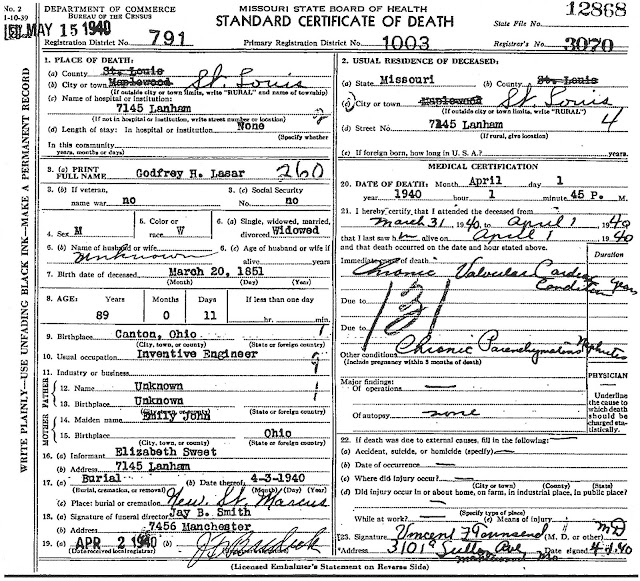 No. 2
1-10-39
DEPARTMENT OF COMMERCE
BUREAU OF THE CENSUS
MISSOURI STATE BOARD OF HEALTH
STANDARD CERTIFICATE OF DEATH
12868
State File No.
MAY 15 1940
Registration District No. 791
Primary Registration District No. 1003
Registrar's No. 3070
WRITE PLAINLY—USE UNFADING BLACK INK—MAKE A PERMANENT RECORD
1. PLACE OF DEATH:
(a) County St. Louis
(b) City or town Maplewood St Louis
(If outside city or town limits, write "RURAL" and name of township)
(c) Name of hospital or institution:
7145 Lanham
(If not in hospital or institution, write street number or location)
(d) Length of stay: In hospital or institution None
(Specify whether
In this community
years, months or days)
2. USUAL RESIDENCE OF DECEASED:
(a) State Missouri (b) County St. Louis
(c) City or town Maplewood St Louis
(If outside city or town limits, write "RURAL")
4
(d) Street No. 7245 Lanham
(If rural, give location)
(e) If foreign born, how long in U. S. A.? years.
3. (a) PRINT
FULL NAME Godfrey H. Lasar 260
3. (b) If veteran,
name war no
3. (c) Social Security
No. no
4. Sex M
5. Color or
race W
6. (a) Single, widowed, married,
divorced Widowed
6. (b) Name of husband or wife
Unknown
6. (c) Age of husband or wife if
alive years
7. Birth date of deceased March 20, 1851
(Month) (Day) (Year)
8. AGE: Years Months Days If less than one day
89 0 11 hr. min.
9. Birthplace Canton, Ohio
(City, town, or county) (State or foreign country)
10. Usual occupation Inventive Engineer
11. Industry or business
FATHER
12. Name Unknown
13. Birthplace Unknown
(City, town, or county) (State or foreign country)
MOTHER
14. Maiden name Emily John
15. Birthplace Ohio
(City, town, or county) (State or foreign country)
16. (a) Informant Elizabeth Sweet
(b) Address 7145 Lanham
17. (a) Burial (b) Date thereof 4-3-1940
(Burial, cremation, or removal) (Month) (Day) (Year)
(c) Place: burial or cremation New St. Marcus
18. (a) Signature of funeral director Jay B. Smith
(b) Address 7456 Manchester
19. (a) APR 2 1940 (b)
(Date received local registrar) (Registrar's signature)
MEDICAL CERTIFICATION
20. DATE OF DEATH: Month April day 1
year 1940 hour 1 minute 45 P. M.
21. I hereby certify, that I attended the deceased from
March 31, 1940, to April 1, 1940
that I last saw h alive on April 1, 1940
and that death occurred on the date and hour stated above.
Duration
Immediate cause of death
Chronic Valvular Cardiac
Condition years
Due to
131
Due to
Other conditions Chronic Parenchymatous Nephritis
(Include pregnancy within 3 months of death)
PHYSICIAN
Underline
the cause to
which death
should be
charged sta-
tistically.
Major findings:
Of operations
Of autopsy none
22. If death was due to external causes, fill in the following:
(a) Accident, suicide, or homicide (specify)
(b) Date of occurrence
(c) Where did injury occur?
(City or town) (County) (State)
(d) Did injury occur in or about home, on farm, in industrial place, in public place?
(Specify type of place)
While at work? (e) Means of injury
23. Signature Vincent F Townsend MD
(M. D. or other)
Address 3101a Sutton Ave Date signed 4-1-40
Maplewood Mo
(Licensed Embalmer's Statement on Reverse Side)